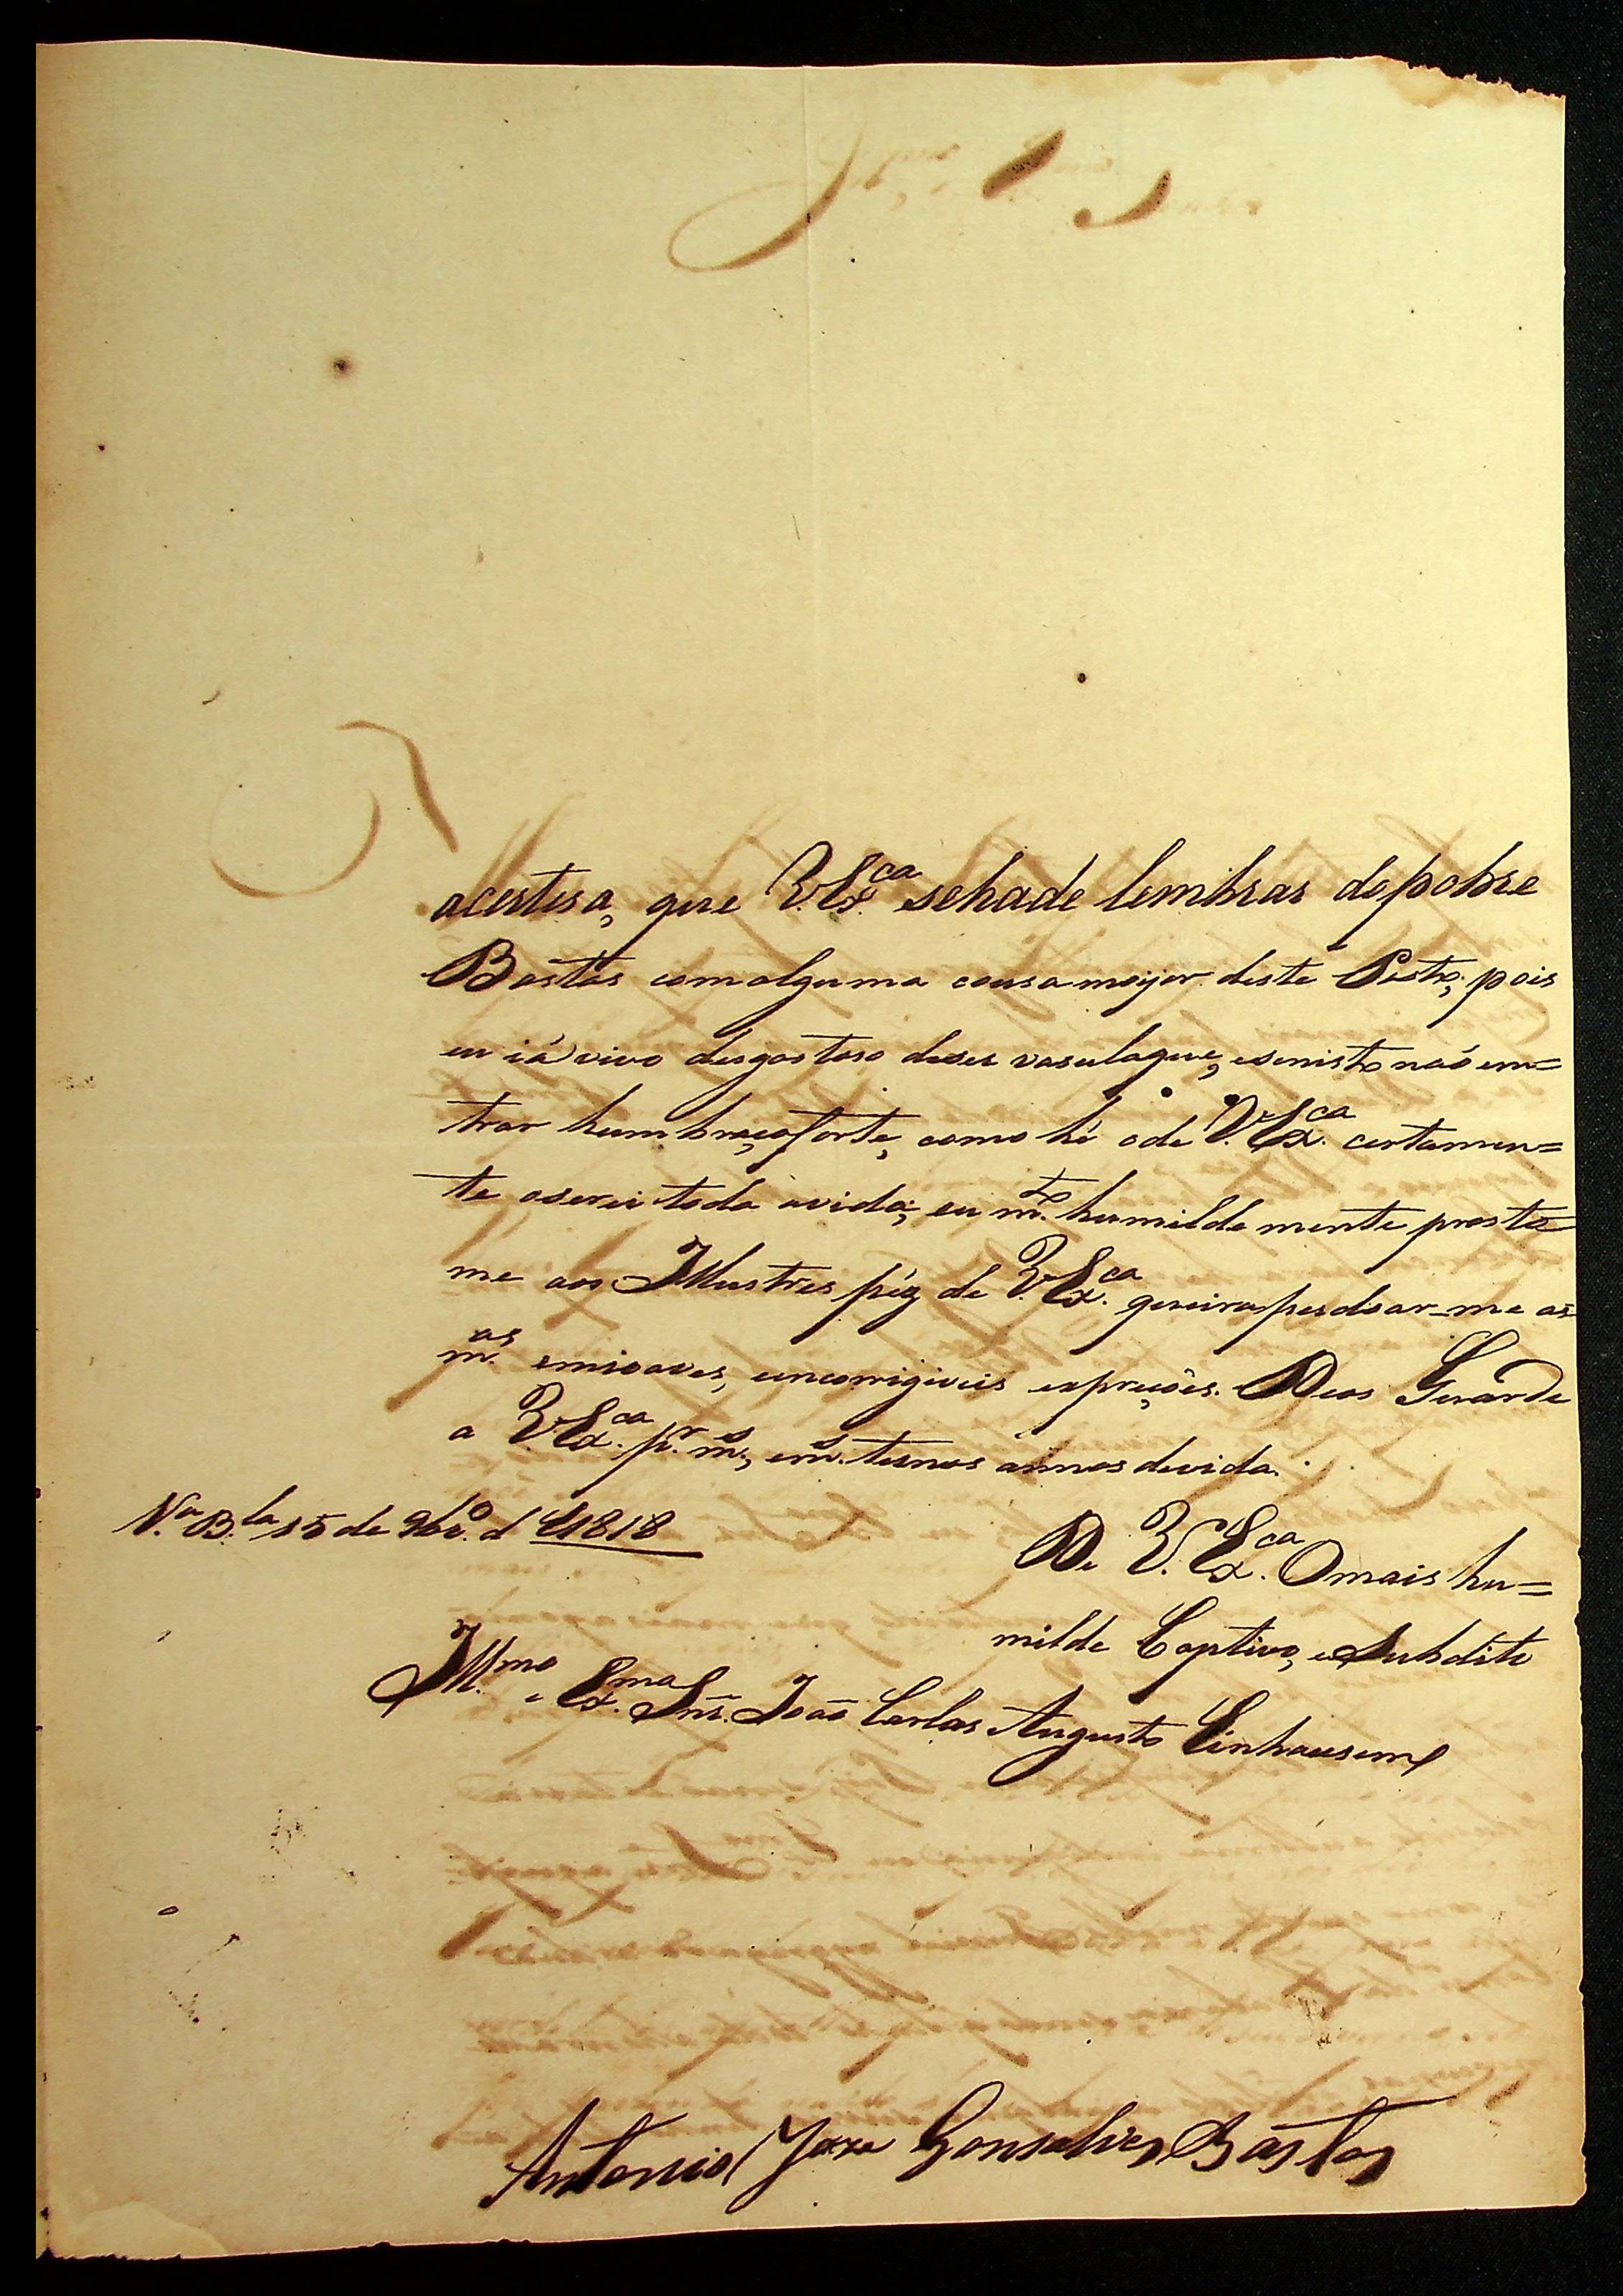 acertesa, que V. Ex.ca sehade lembrar depobre
Bastos comalguma cousa mayor deste Posto; pois
eu iá vivo desgostoso deser vasculaque, esenisto naõ em=
trar hum braço forte, como hé ode V. Ex.ca certamen=
te oserei toda avida; eu m.to humilde mente prosto
me aos Illustres péz de V. Ex.ca queira perdoar-me as
m.as emioaves, eincorrigiveis expreçoẽs. Deos Guarde
a V. Ex.ca p.r m.s, em.s ternos annos devida.
N.a B.la 15 de 9br.o d 1818
De V. Ex.ca Omais hu=
milde Captivo, e Subdito
Ill.mo e Ex.mo Snr. Joaõ Carlos Augusto Oinhausem
Antonio Joze Gonsalves Bastos